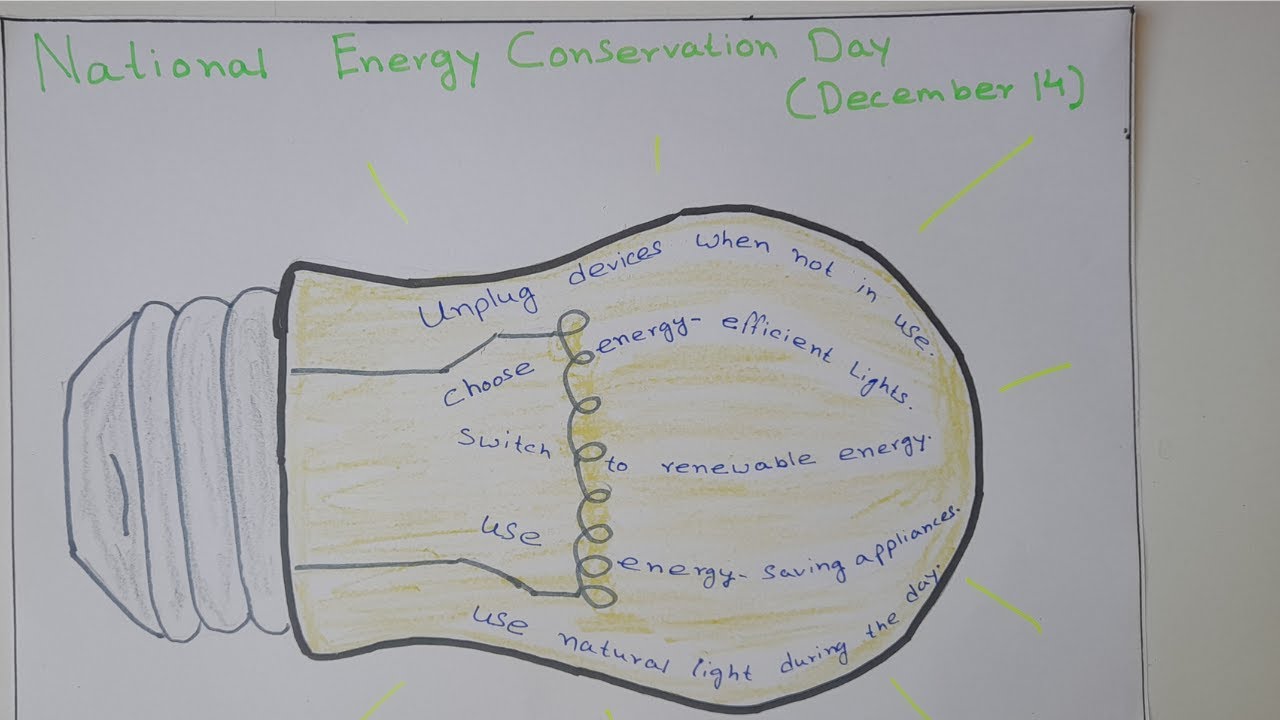 National Energy Conservation Day
(December 14)
Unplug devices when not in use.
Choose energy-efficient Lights.
Switch to renewable energy.
Use energy-saving appliances.
Use natural light during the day.